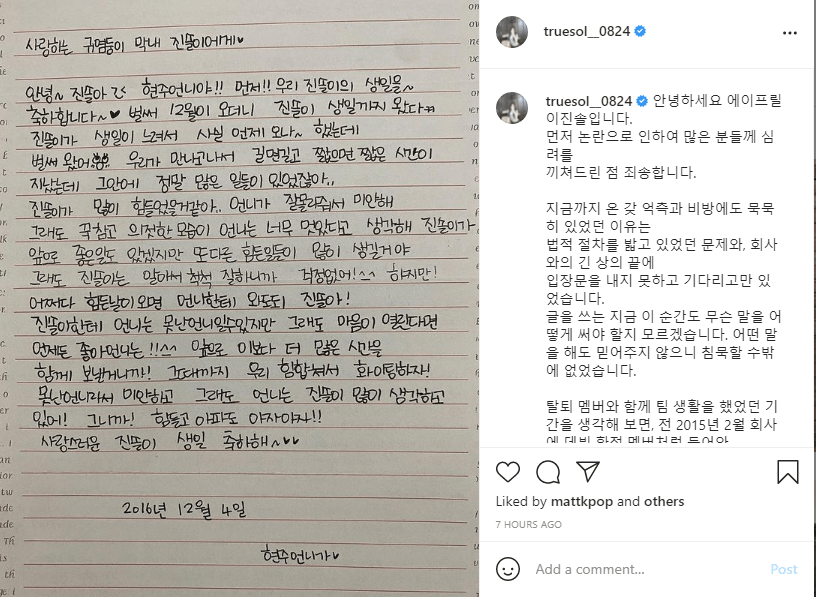 사랑하는 귀염둥이 막내 진쫄이에게♥
안녕~ 진쫄아 현주언니야!! 먼저!! 우리 진쫄이의 생일을~
축하합니다~♥ 벌써 12월이 오더니 진쫄이 생일까지 왔다ㅠㅠ
진쫄이가 생일이 느려서 사실 언제 오나~ 했는데
벌써 왔어 우리가 만나고나서 길면길고 짧으면 짧은 시간이
지났는데 그안에 정말 많은 일들이 있었잖아..
진쫄이가 많이 힘들었을거같아.. 언니가 잘몰라줘서 미안해
그래도 꾹참고 의젓한 모습이 언니는 너무 멋있다고 생각해 진쫄이가
앞으로 좋은일도 있겠지만 또다른 힘든일들이 많이 생길거야
그래도 진쫄이는 알아서 척척 잘하니까 걱정없어!^^ 하지만!
어쩌다 힘든날이 오면 언니한테 와도돼 진쫄아!
진쫄이한테 언니는 못난언니일수있지만 그래도 마음이 열린다면
언제든 좋아언니는!!^^ 앞으로 이보다 더 많은 시간을
함께 보낼거니까! 그때까지 우리 힘합쳐서 화이팅하자!
못난언니라서 미안하고 그래도 언니는 진쫄이 많이 생각하고
있어! 그니까! 힘들고 아파도 야자야자!!
사랑스러운 진쫄이 생일 축하해~♥♥
2016년 12월 4일
현주언니가♥
truesol__0824
truesol__0824 안녕하세요 에이프릴
이진솔입니다.
먼저 논란으로 인하여 많은 분들께 심
려를
끼쳐드린 점 죄송합니다.
지금까지 온 갖 억측과 비방에도 묵묵
히 있었던 이유는
법적 절차를 밟고 있었던 문제와, 회사
와의 긴 상의 끝에
입장문을 내지 못하고 기다리고만 있
었습니다.
글을 쓰는 지금 이 순간도 무슨 말을 어
떻게 써야 할지 모르겠습니다. 어떤 말
을 해도 믿어주지 않으니 침묵할 수밖
에 없었습니다.
탈퇴 멤버와 함께 팀 생활을 했었던 기
간을 생각해 보면, 전 2015년 2월 회사
에 데뷔 확정 멤버처럼 들어와
Liked by mattkpop and others
7 HOURS AGO
Add a comment...
Post